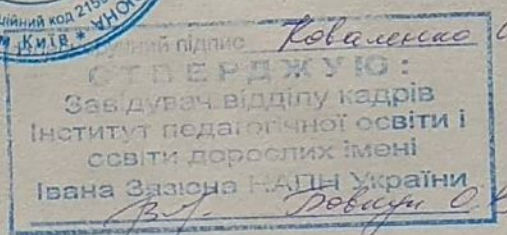 ційний код 215
м. Київ * УКРАЇНА
підпис Коваленко О
СТВЕРДЖУЮ:
Завідувач відділу кадрів
Інститут педагогічної освіти і
освіти дорослих імені
Івана Зязюна НАПН України